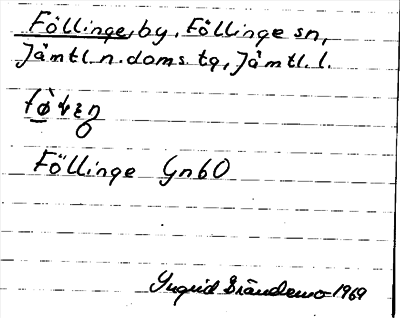 Föllinge, by, Föllinge sn,
Jämtl. n. doms. tg, Jämtl. l.
Föllinge Gnb0
Ingrid Brändemo 1969